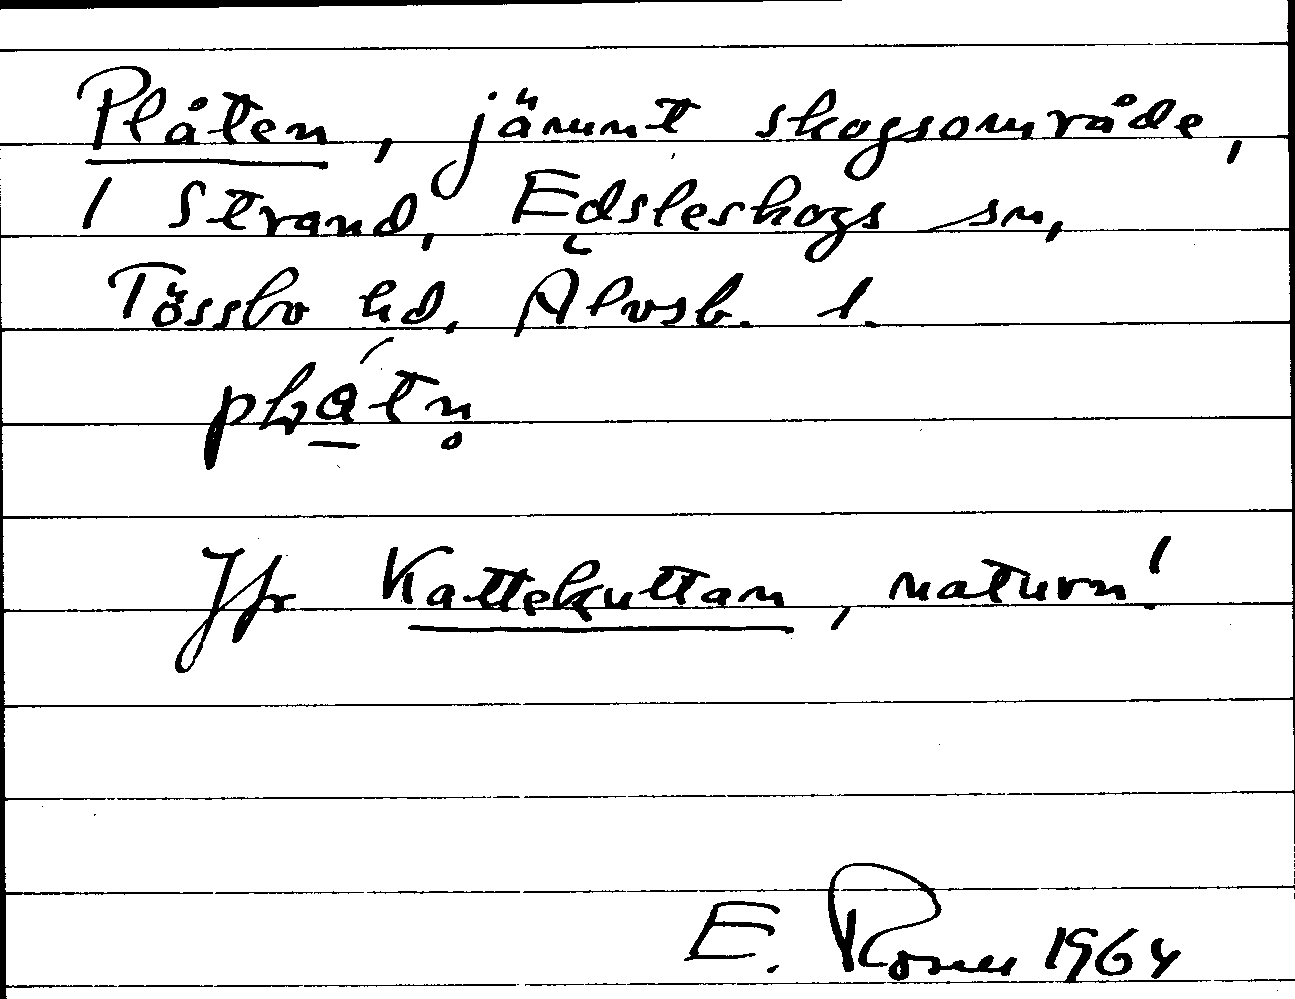 Plåten, jämnt skogsområde,
1 Strand, Edsleskogs sn,
Tössbo hd. Älvsb. l.
Jfr Kattekuttam, naturn!
E. 1964